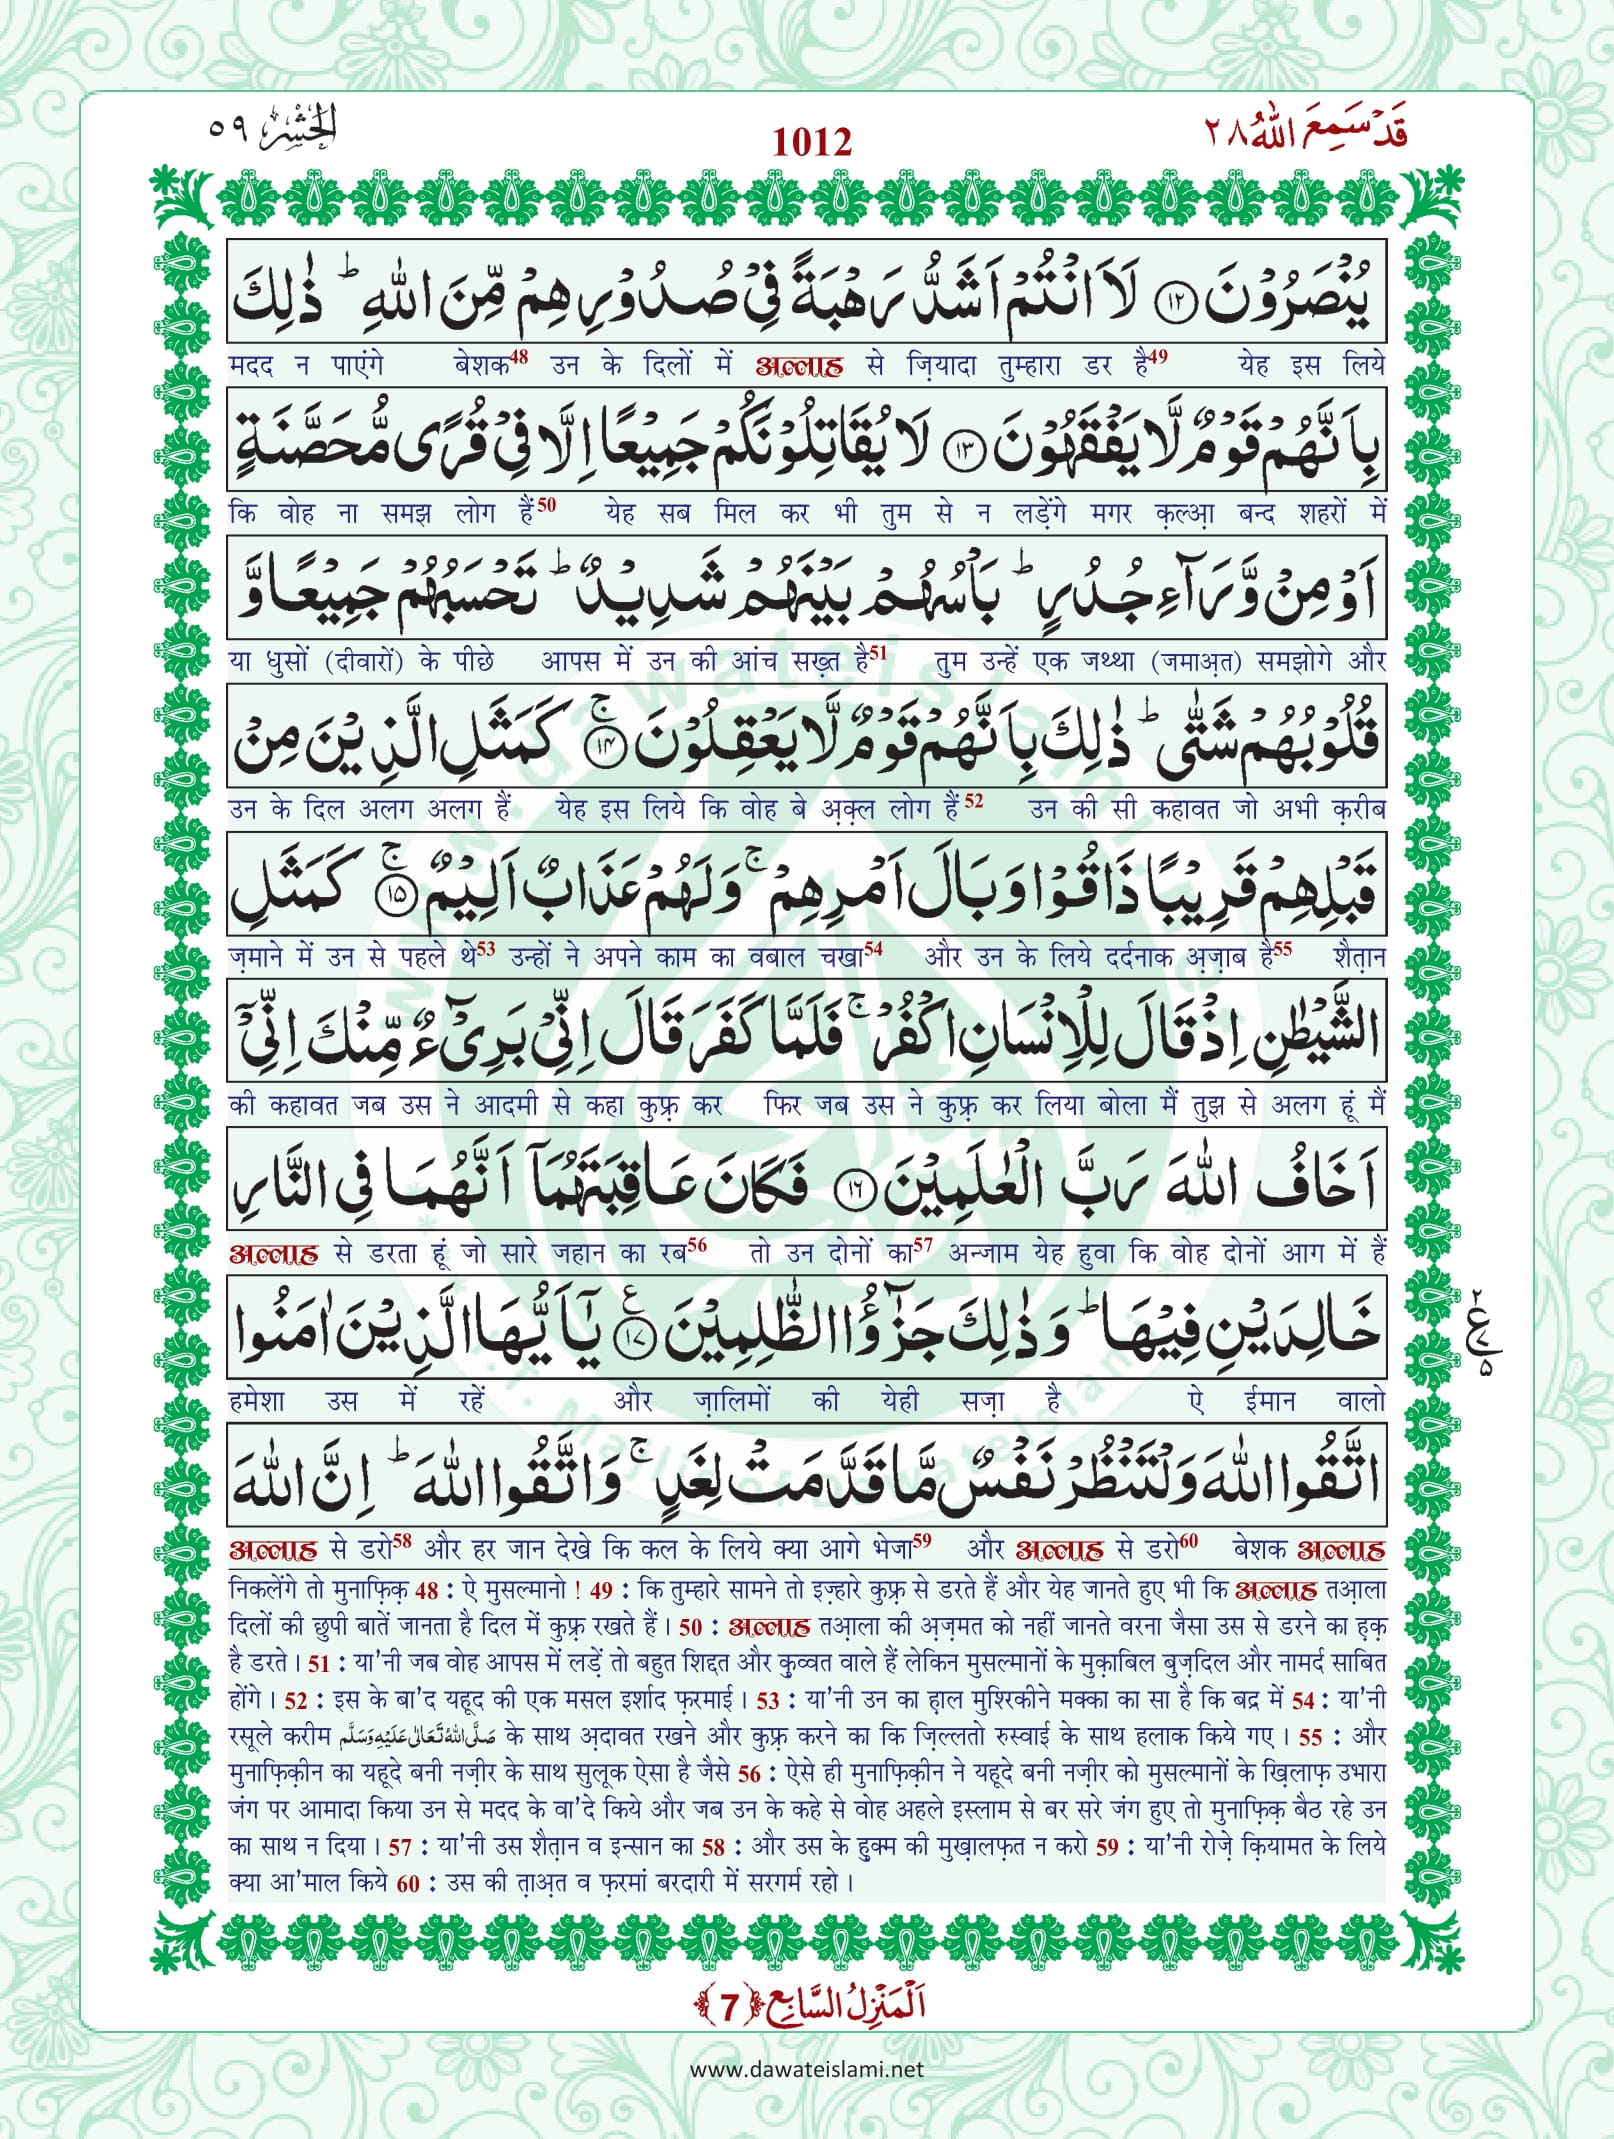 قَدْ سَمِعَ اللّٰهُ ٢٨
1012
الْحَشْر ٥٩
يُنْصَرُوْنَ ﴿۱۲﴾ لَاَ اَنْتُمْ اَشَدُّ رَهْبَةً فِیْ صُدُوْرِهِمْ مِّنَ اللّٰهِ ؕ ذٰلِكَ
मदद न पाएंगे बेशक48 उन के दिलों में अल्लाह से ज़ियादा तुम्हारा डर है49 येह इस लिये
بِاَنَّهُمْ قَوْمٌ لَّا یَفْقَهُوْنَ ﴿۱۳﴾ لَا یُقَاتِلُوْنَكُمْ جَمِیْعًا اِلَّا فِیْ قُرًى مُّحَصَّنَةٍ
कि वोह ना समझ लोग हैं50 येह सब मिल कर भी तुम से न लड़ेंगे मगर क़ल्आ़ बन्द शहरों में
اَوْ مِنْ وَّرَآءِ جُدُرٍ ؕ بَاْسُهُمْ بَیْنَهُمْ شَدِیْدٌ ؕ تَحْسَبُهُمْ جَمِیْعًا وَّ
या धुसों (दीवारों) के पीछे आपस में उन की आंच सख़्त है51 तुम उन्हें एक जथ्था (जमाअ़त) समझोगे और
قُلُوْبُهُمْ شَتّٰى ؕ ذٰلِكَ بِاَنَّهُمْ قَوْمٌ لَّا یَعْقِلُوْنَ ﴿۱۴﴾ ۚ كَمَثَلِ الَّذِیْنَ مِنْ
उन के दिल अलग अलग हैं येह इस लिये कि वोह बे अ़क़्ल लोग हैं52 उन की सी कहावत जो अभी क़रीब
قَبْلِهِمْ قَرِیْبًا ذَاقُوْا وَبَالَ اَمْرِهِمْ ۚ وَلَهُمْ عَذَابٌ اَلِیْمٌ ﴿۱۵﴾ ۚ كَمَثَلِ
ज़माने में उन से पहले थे53 उन्हों ने अपने काम का वबाल चखा54 और उन के लिये दर्दनाक अ़ज़ाब है55 शैत़ान
الشَّیْطٰنِ اِذْ قَالَ لِلْاِنْسَانِ اكْفُرْ ۚ فَلَمَّا كَفَرَ قَالَ اِنِّیْ بَرِیْٓءٌ مِّنْكَ اِنِّیْۤ
की कहावत जब उस ने आदमी से कहा कुफ़्र कर फिर जब उस ने कुफ़्र कर लिया बोला मैं तुझ से अलग हूं मैं
اَخَافُ اللّٰهَ رَبَّ الْعٰلَمِیْنَ ﴿۱۶﴾ فَكَانَ عَاقِبَتَهُمَاۤ اَنَّهُمَا فِی النَّارِ
अल्लाह से डरता हूं जो सारे जहान का रब56 तो उन दोनों का57 अन्जाम येह हुवा कि वोह दोनों आग में हैं
خَالِدَیْنِ فِیْهَا ؕ وَذٰلِكَ جَزٰٓؤُا الظّٰلِمِیْنَ ﴿۱۷﴾ ع یٰۤاَیُّهَا الَّذِیْنَ اٰمَنُوا
٢ ع ٥
हमेशा उस में रहें और ज़ालिमों की येही सज़ा है ऐ ईमान वालो
اتَّقُوا اللّٰهَ وَلْتَنْظُرْ نَفْسٌ مَّا قَدَّمَتْ لِغَدٍ ۚ وَاتَّقُوا اللّٰهَ ؕ اِنَّ اللّٰهَ
अल्लाह से डरो58 और हर जान देखे कि कल के लिये क्या आगे भेजा59 और अल्लाह से डरो60 बेशक अल्लाह
निकलेंगे तो मुनाफ़िक़ 48 : ऐ मुसल्मानो ! 49 : कि तुम्हारे सामने तो इज़्हारे कुफ़्र से डरते हैं और येह जानते हुए भी कि अल्लाह तआ़ला
दिलों की छुपी बातें जानता है दिल में कुफ़्र रखते हैं। 50 : अल्लाह तआ़ला की अ़ज़मत को नहीं जानते वरना जैसा उस से डरने का ह़क़
है डरते। 51 : या'नी जब वोह आपस में लड़ें तो बहुत शिद्दत और कुव्वत वाले हैं लेकिन मुसल्मानों के मुक़ाबिल बुज़दिल और नामर्द साबित
होंगे। 52 : इस के बा'द यहूद की एक मसल इर्शाद फ़रमाई। 53 : या'नी उन का ह़ाल मुश्रिकीने मक्का का सा है कि बद्र में 54 : या'नी
रसूले करीम صَلَّى اللّٰهُ تَعَالٰى عَلَيْهِ وَسَلَّم के साथ अ़दावत रखने और कुफ़्र करने का कि ज़िल्लतो रुस्वाई के साथ हलाक किये गए। 55 : और
मुनाफ़िक़ीन का यहूदे बनी नज़ीर के साथ सुलूक ऐसा है जैसे 56 : ऐसे ही मुनाफ़िक़ीन ने यहूदे बनी नज़ीर को मुसल्मानों के ख़िलाफ़ उभारा
जंग पर आमादा किया उन से मदद के वा'दे किये और जब उन के कहे से वोह अहले इस्लाम से बर सरे जंग हुए तो मुनाफ़िक़ बैठ रहे उन
का साथ न दिया। 57 : या'नी उस शैत़ान व इन्सान का 58 : और उस के हुक्म की मुख़ालफ़त न करो 59 : या'नी रोज़े क़ियामत के लिये
क्या आ'माल किये 60 : उस की त़ाअ़त व फ़रमां बरदारी में सरगर्म रहो।
اَلْمَنْزِلُ السَّابِع ﴿7﴾
www.dawateislami.net